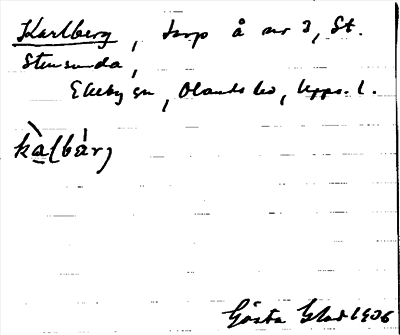 Karlberg, torp å nr 3, St.
Stensunda,
Ekeby sn, Olands hd, Upps. l.
kàlbárj
Gösta Glad 1906